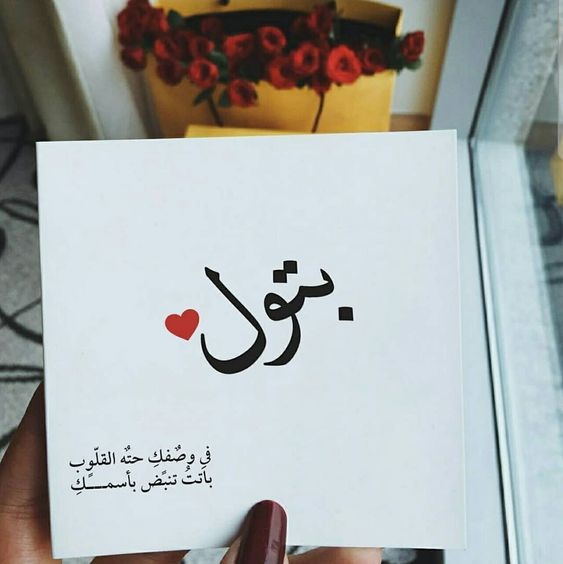 بتول
في وصٌفكِ حتٌه القلّوب
باَتتُ تنبًض بأسمـــكِ